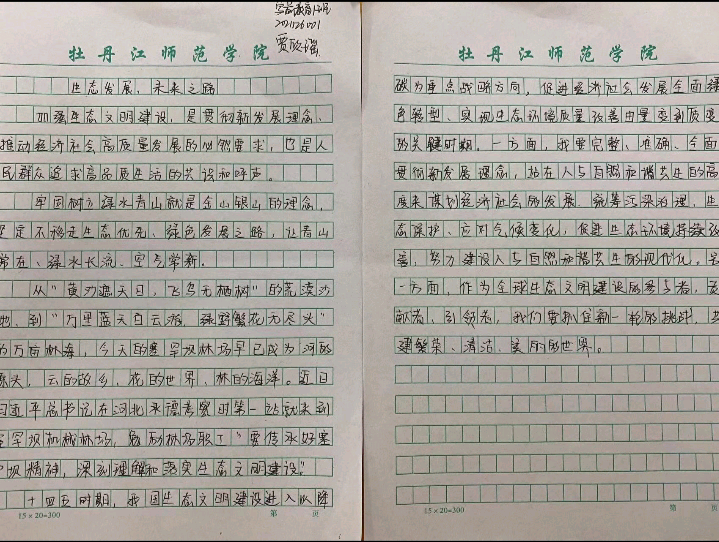 学前教育
贾欣
牡丹江师范学院
生态发展，未来之路
加强生态文明建设，是贯彻新发展理念、
推动经济社会高质量发展的必然要求，也是人
民群众追求高品质生活的共识和呼声。
牢固树立绿水青山就是金山银山的理念，
坚定不移走生态优先、绿色发展之路，让青山
常在、绿水长流、空气常新。
从"黄沙遮天日，飞鸟无栖树"的荒漠沙
地，到"万里蓝天白云游，绿野繁花无尽头"
的万亩林海，今天的塞罕坝林场早已成为河的
源头，云的故乡，花的世界、林的海洋。近日
习近平总书记在河北承德考察时第一站就来到
塞罕坝机械林场，勉励林场职工"要传承好塞
罕坝精神，深刻理解和落实生态文明建设"。
十四五时期，我国生态文明建设进入以降
15×20=300
第 页
牡丹江师范学院
碳为重点战略方向，促进经济社会发展全面绿
色转型、实现生态环境质量改善由量变到质变
的关键时期。一方面，我要完整、准确、全面
贯彻新发展理念，站在人与自然和谐共生的高
度来谋划经济社会的发展，统筹污染治理，生
态保护、应对气候变化，促进生态环境持续改
善，努力建设人与自然和谐共生的现代化。另
一方面，作为全球生态文明建设的参与者，贡
献者，引领者，我们要抓住新一轮的挑战，共
建繁荣、清洁、美丽的世界。
15×20=300
第 页